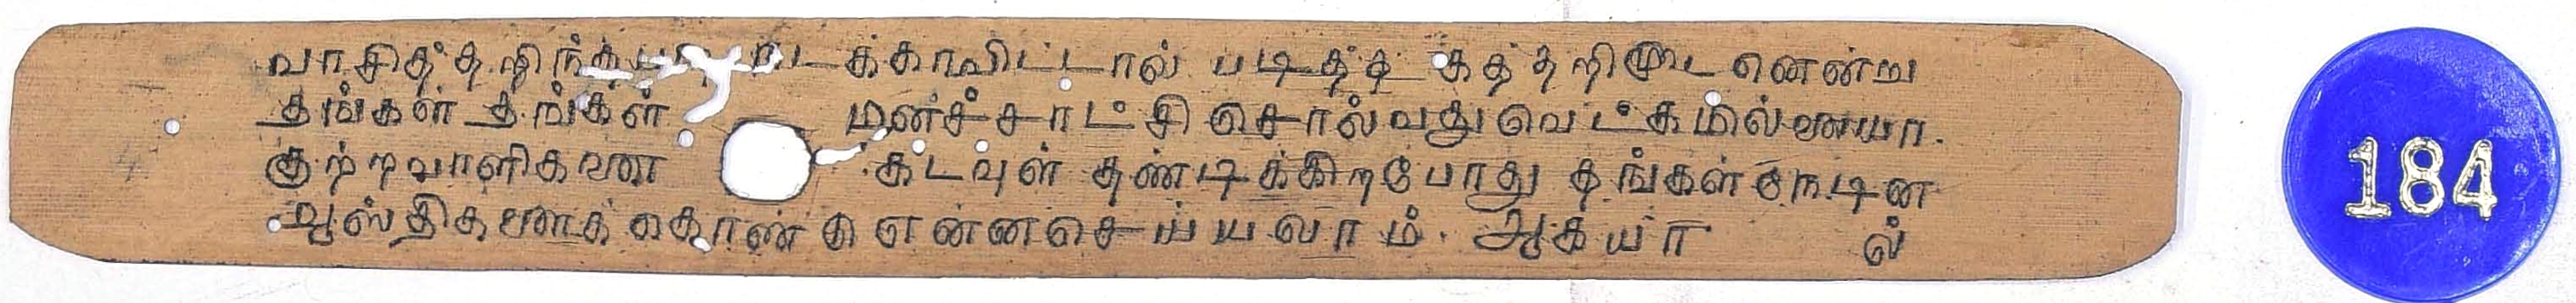 வாசித்தறிந்த டக்காவிட்டால் படித்த கத்தறிமூடனென்று
தங்கள் தங்கள் மனச்சாட்சி சொல்வது வெட்கமில்லையா.
குற்றவாளிகளை கடவுள் தண்டிக்கிறபோது தங்கள் தேடின
ஆஸ்திகளைக் கொண்டு என்னசெய்யலாம். ஆகயால்
184